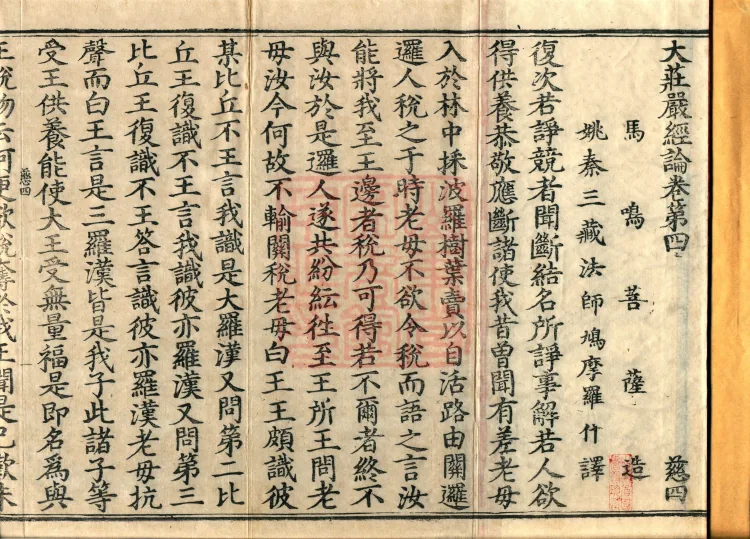 大莊嚴經論卷第四 慈四
馬鳴菩薩造
姚秦三藏法師鳩摩羅什譯
復次若諍競者聞斷結名所諍事解若人欲
得供養恭敬應斷諸使我昔曾聞有差老母
入於林中採波羅樹葉賣以自活路由關邏
邏人稅之于時老母不欲令稅而語之言汝
能將我至王邊者稅乃可得若不爾者終不
與汝於是邏人遂共紛紜徃至王所王問老
母汝今何故不輸關稅老母白王王頗識彼
某比丘不王言我識是大羅漢又問第二比
丘王復識不王言我識彼亦羅漢又問第三
比丘王復識不王答言識彼亦羅漢老母抗
聲而白王言是三羅漢皆是我子此諸子等
受王供養能使大王受無量福是即名為與
慈四
王稅物云何更欲稅奪於我王聞是已歎未